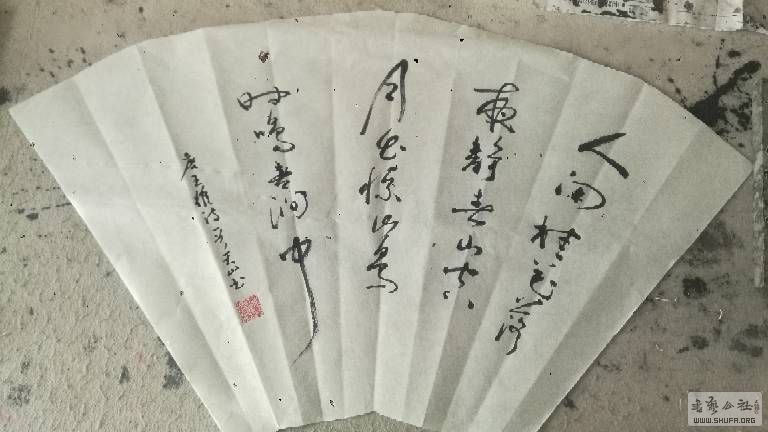 人闲桂花落
夜静春山空
月出惊山鸟
时鸣春涧中
唐王维诗
书艺公社
WWW.SHUFA.ORG